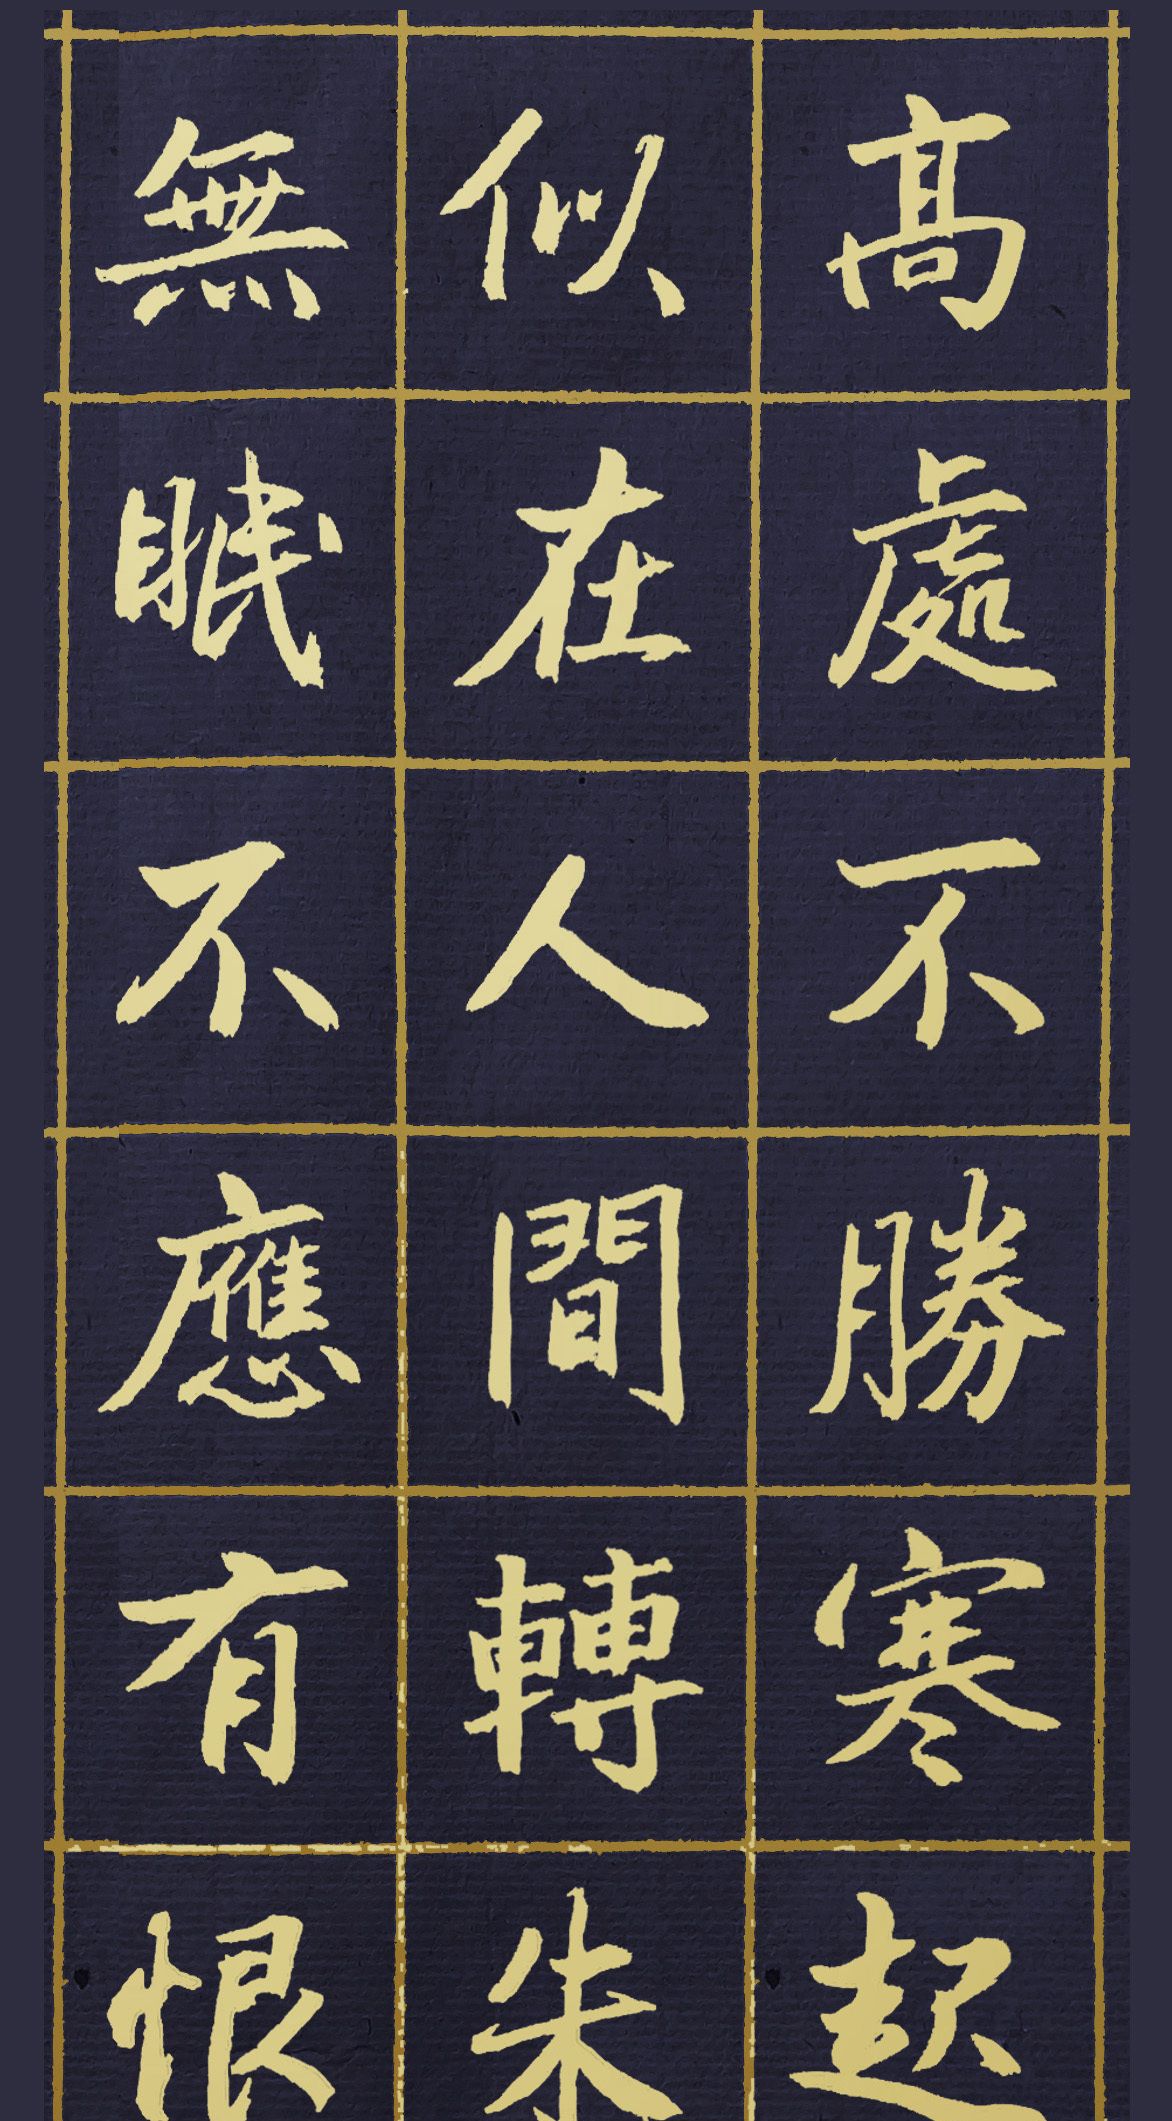 高處不勝寒起
似在人間轉朱
無眠不應有恨